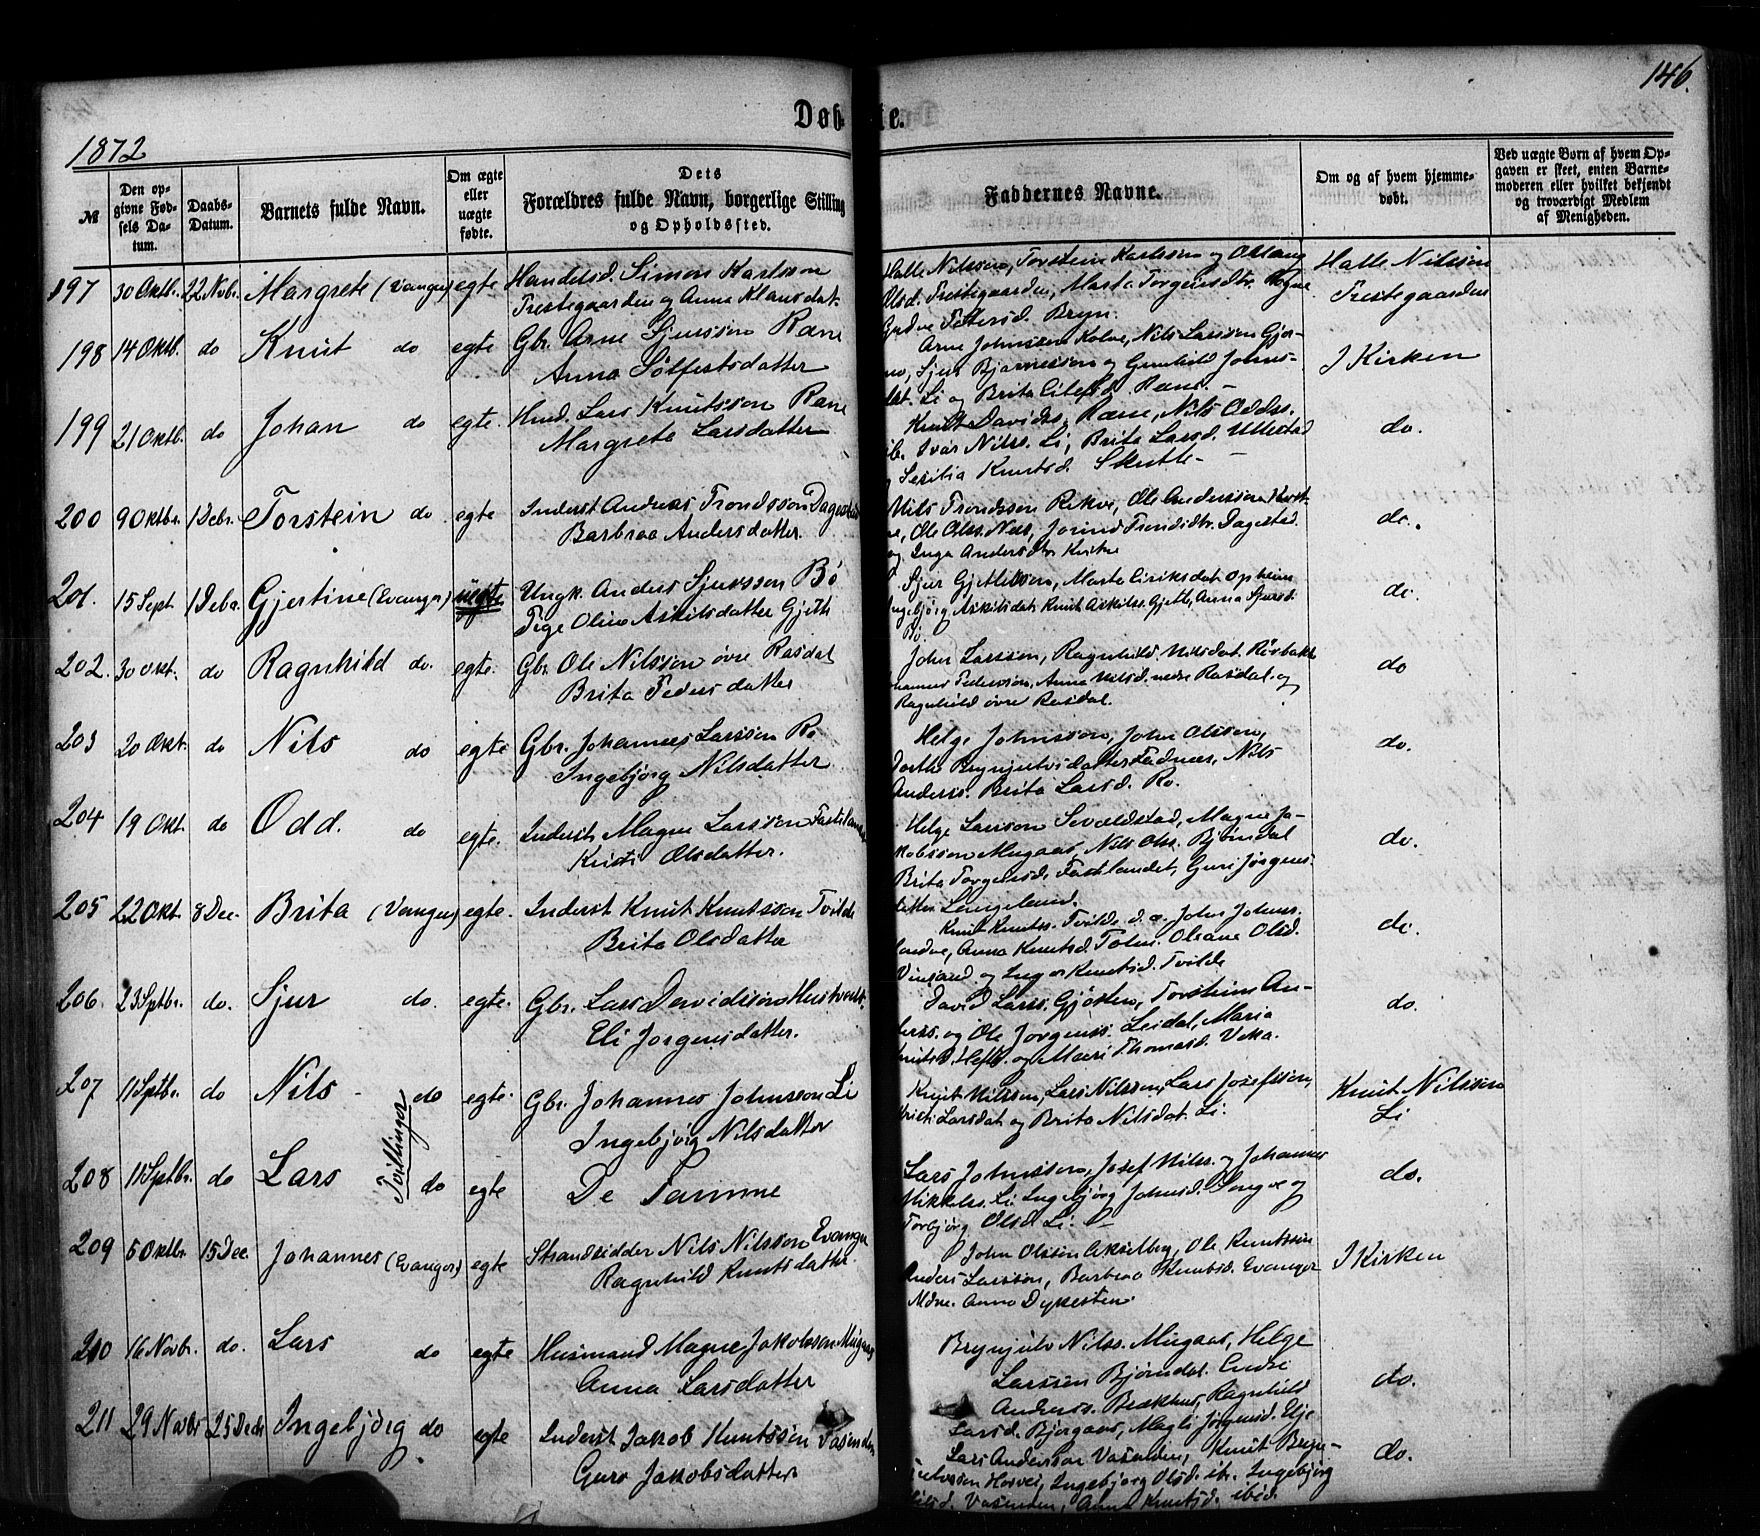 146.
Døbte.
1872
№
Den opgivne Fødsels Datum.
Daabs-Datum.
Barnets fulde Navn.
Om ægte eller uægte fødte.
Dets Forældres fulde Navn, borgerlige Stilling og Opholdssted.
Faddernes Navne.
Om og af hvem hjemmedøbt.
Ved uægte Børn af hvem Opgaven er skeet, enten Barnemoderen eller hvilket bekjendt og troværdigt Medlem af Menigheden.
197 30 Oktb. 22 Nobr. Margrete (Vanger) egte Handelsd. Simon Karlsson
Prestegaarden og Anna Klausdat.
Halle Nilsson, Torstein Karlsson og
Olsd. Prestegaarden, Marta Torgersdtr.
Pettersd. Bryn.
Halle Nilsson
Prestegaarden
198 14 Oktb. do Knut do egte Gbr. Arne Sjursson Ræne
Anna Sølfestsdatter
Arne Johnsson Kolve, Nils Larsson Gjer-
no, Sjur Bjarnesson og Gunhild Johns-
dat. Li og Brita Eilefsd. Ræne. –
I Kirken
199 21 Oktb. do Johan do egte. Hmd. Lars Knutsson Ræne
Margrete Larsdatter
Knut Davids. Ræne, Nils Odds.
ib. Ivar Nilss. Li, Brita Larsd. Ullestad
Sesilia Knutsd. Skutle –
do.
200 9 Oktbr. 1 Debr. Torstein do. egte Inderst Andreas Trondsson Dagestad
Barbraa Andersdatter.
Nils Trondsson Rekve, Ole Andersson
Ole Olss. Nes, Jorind Trondsdtr. Dagestad
og Inga Andersdtr.
do.
201. 15 Sept. 1 Debr. Gjertine (Evanger) uegte Ungk. Anders Sjursson Bø
Pige Olina Askilsdatter Gjetle
Sjur Gjetlesson, Marta Eiriksdat. Opheim
Ingebjørg Askilsdat. Knut Askilss. Gjetle, Anna Sjursd.
Bø.
do.
202. 30 Okt. do Ragnhild do. egte. Gbr. Ole Nilsson øvre Rasdal
Brita Pedersdatter
John Larsson, Ragnhild Nilsdat.
Johannes Pedersson, Anna Nilsd. nedre Rasdal og
Ragnhild øvre Rasdal.
do
203 20 Okt. do Nils do egte Gbr. Johannes Larsson Ro
Ingebjørg Nilsdatter
Helge Johnsson, John Olsson,
Dorthe Brynjulvsdatter Fadnes, Nils
Anderss. Brita Larsd. Ro.
do.
204 19 Okt. do Odd. do egte. Inderst Magne Larsson Fastlandet
Kristi Olsdatter.
Helge Larsson Sevaldstad, Magne Ja-
kobsson Mugaas, Nils Olss. Bjørndal
Brita Torgersd. Fastlandet, Guri Jørgens-
datter Lengeland.
do.
205 22 Okt. 8 Dec. Brita (Vanger) egte. Inderst Knut Knutsson Tvilde
Brita Olsdatter
Knut Knutss. Tvilde d. æ. John Johns.
Anna Knutsd. Oleane Olsd.
Vinsand og Inger Knutsd. Tvilde
do.
206. 23 Sptbr. do. Sjur do. egte. Gbr. Lars Davidsson
Eli Jørgensdatter.
David Larss. Gjøstein, Torstein An-
derss. og Ole Jørgenss. Leidal, Maria
og Mari Thomasd. Veka.
do.
207 11 Sptbr. do Nils - do egte. Gbr. Johannes Johnsson Li
Ingebjørg Nilsdatter
Knut Nilsson, Lars Nilsson, Lars Josefsson,
Kristi Larsdat. og Brita Nilsdat. Li.
Knut Nilsson
Li
Tvillinger
208 11 Sptbr. do Lars do egte De Samme
Lars Johnsson, Josef Nilss. og Johannes
Mikkels. Li, Ingebjørg Johnsd. og
Torbjørg Olsd. Li. –
do.
209 5 Oktbr. 15 Dec. Johannes (Evanger) egte Strandsidder Nils Nilsson Evanger
Ragnhild Knutsdatter.
John Olsson Akselberg, Ole Knutsson
Anders Larsson, Barbraa Knutsd. Evanger
Mdne. Anna Dykesten.
I Kirken
210 16 Novbr. do. Lars do egte Husmand Magne Jakobsson Mugaas
Anna Larsdatter
Brynjulv Nilss. Mugaas, Helge
Larsson Bjørndal. Endre
Anderss. Brækhus, Ragnhild
Larsd. Bjørgaas, Magli Jørgensd.
do.
211 29 Novbr 25 Decbr Ingebjørg do. egte Inderst Jakob Knutsson Vasenden
Guro Jakobsdatter
Lars Andersson Vasenden, Knut Bryn-
julvsson Horvei, Ingebjørg Olsd. ib. Ingebjørg
Nilsd. Vasenden, Anna Knutsd. ibid.
do.